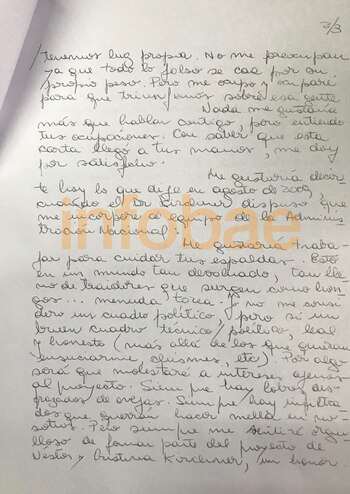 2/3
tenemos luz propia. No me preocupan
ya que todo lo falso se cae por su
propio peso. Pero me ocupo y ocuparé
para que triunfemos sobre esa gente.
Nada me gustaría
más que hablar contigo pero entiendo
tus ocupaciones. Con saber que esta
carta llegó a tus manos, me doy
por satisfecho.
Me gustaría decir-
te hoy lo que dije en agosto de 2009,
cuando el Dr Kirchner dispuso que
me incorpore al equipo de la Adminis-
tración Nacional:
infobae
Me gustaría traba-
jar para cuidar tus espaldas. Esto
en un mundo tan devaluado, tan lle-
no de traidores que surgen como hon-
gos... menuda tarea. Y no me consi-
dero un cuadro político, pero sí un
buen cuadro técnico/político, leal
y honesto (más allá de los que quieran
ensuciarme, chismes, etc). Por algo
será que molestaré a intereses ajenos
al proyecto. Siempre hay lobos dis-
frazados de ovejas. Siempre hay infiltra-
dos que querrán hacer mella en no-
sotros. Pero siempre me sentiré orgu-
lloso de formar parte del proyecto de
Néstor y Cristina Kirchner, un honor.